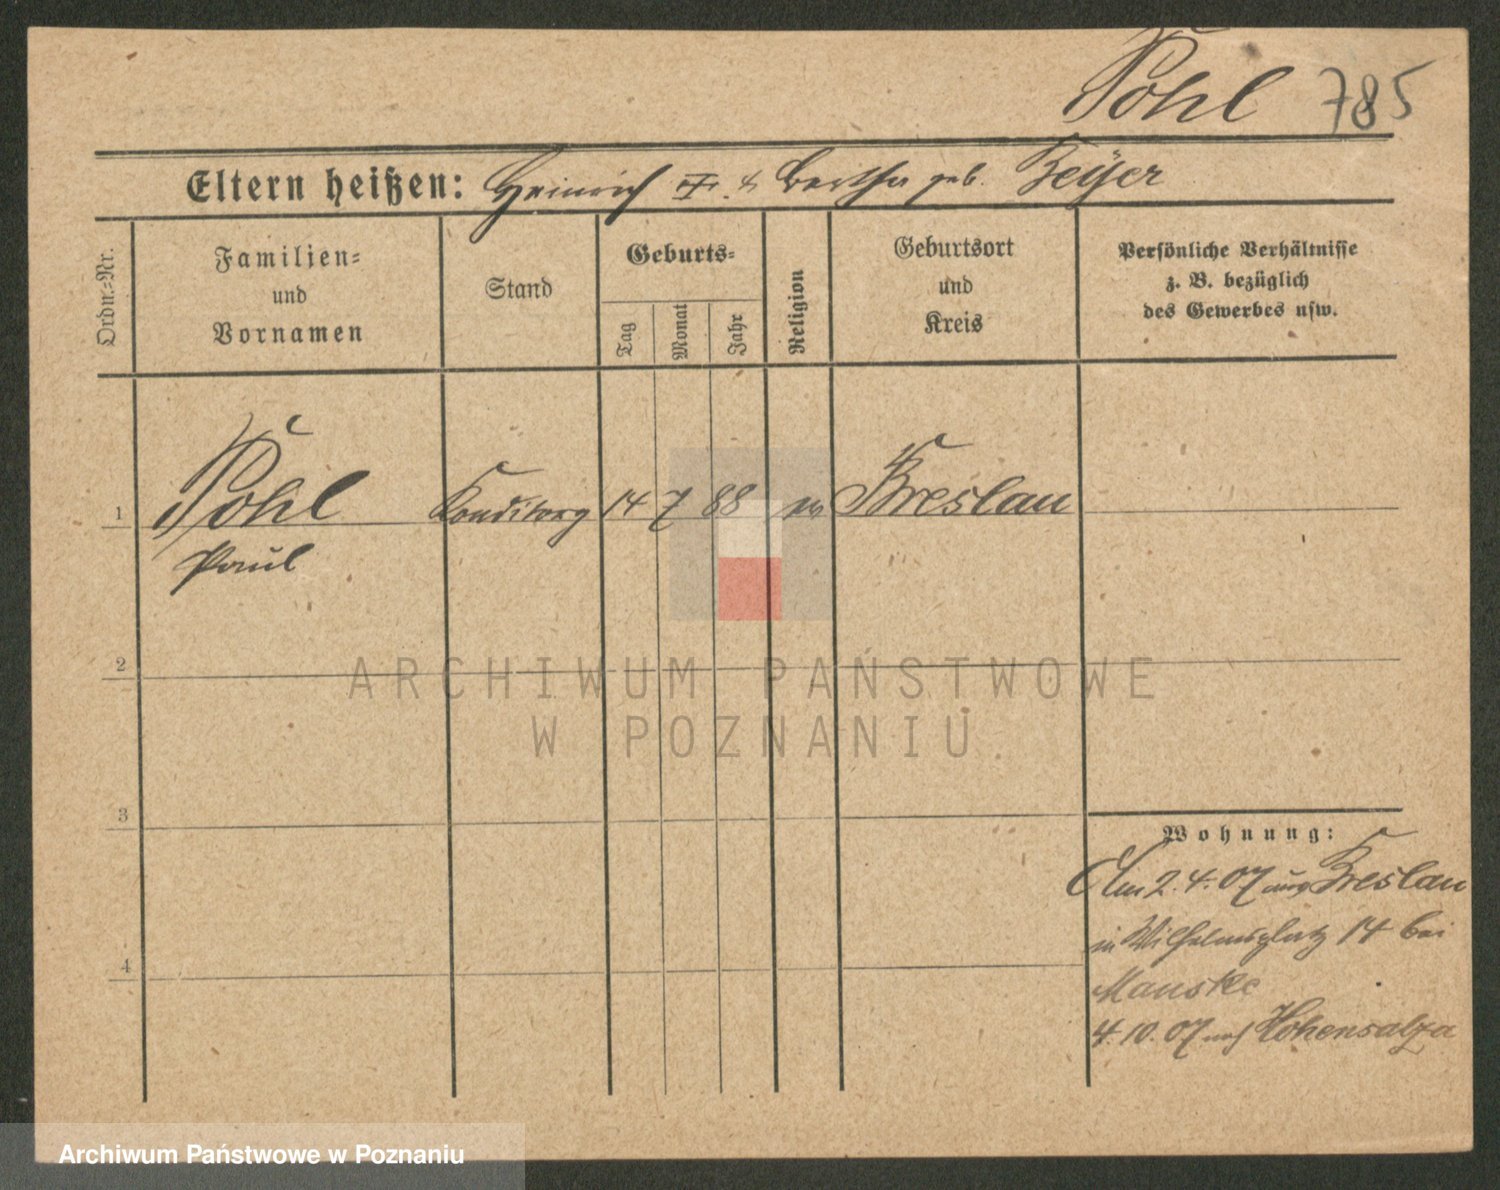 Pohl 785
Eltern heißen: Heinrich & Bertha geb. Beÿer
Ordn.-Nr.
Familien-
und
Vornamen
Stand
Geburts-
Tag
Monat
Jahr
Religion
Geburtsort
und
Kreis
Persönliche Verhältnisse
z. B. bezüglich
des Gewerbes usw.
1 Pohl Konditorg 14 7 88 ev Breslau
Paul
2
3
4
Wohnung:
Am 2.4.07 aus Breslau
in Wilhelmsplatz 14 bei
Manske
4.10.07 nach Hohensalza
ARCHIWUM PAŃSTWOWE
W POZNANIU
Archiwum Państwowe w Poznaniu